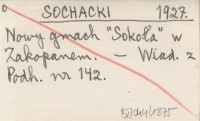 SOCHACKI 1927.
Nowy gmach "Sokoła" w
Zakopanem. — Wiad. z
Podh. nr 142.